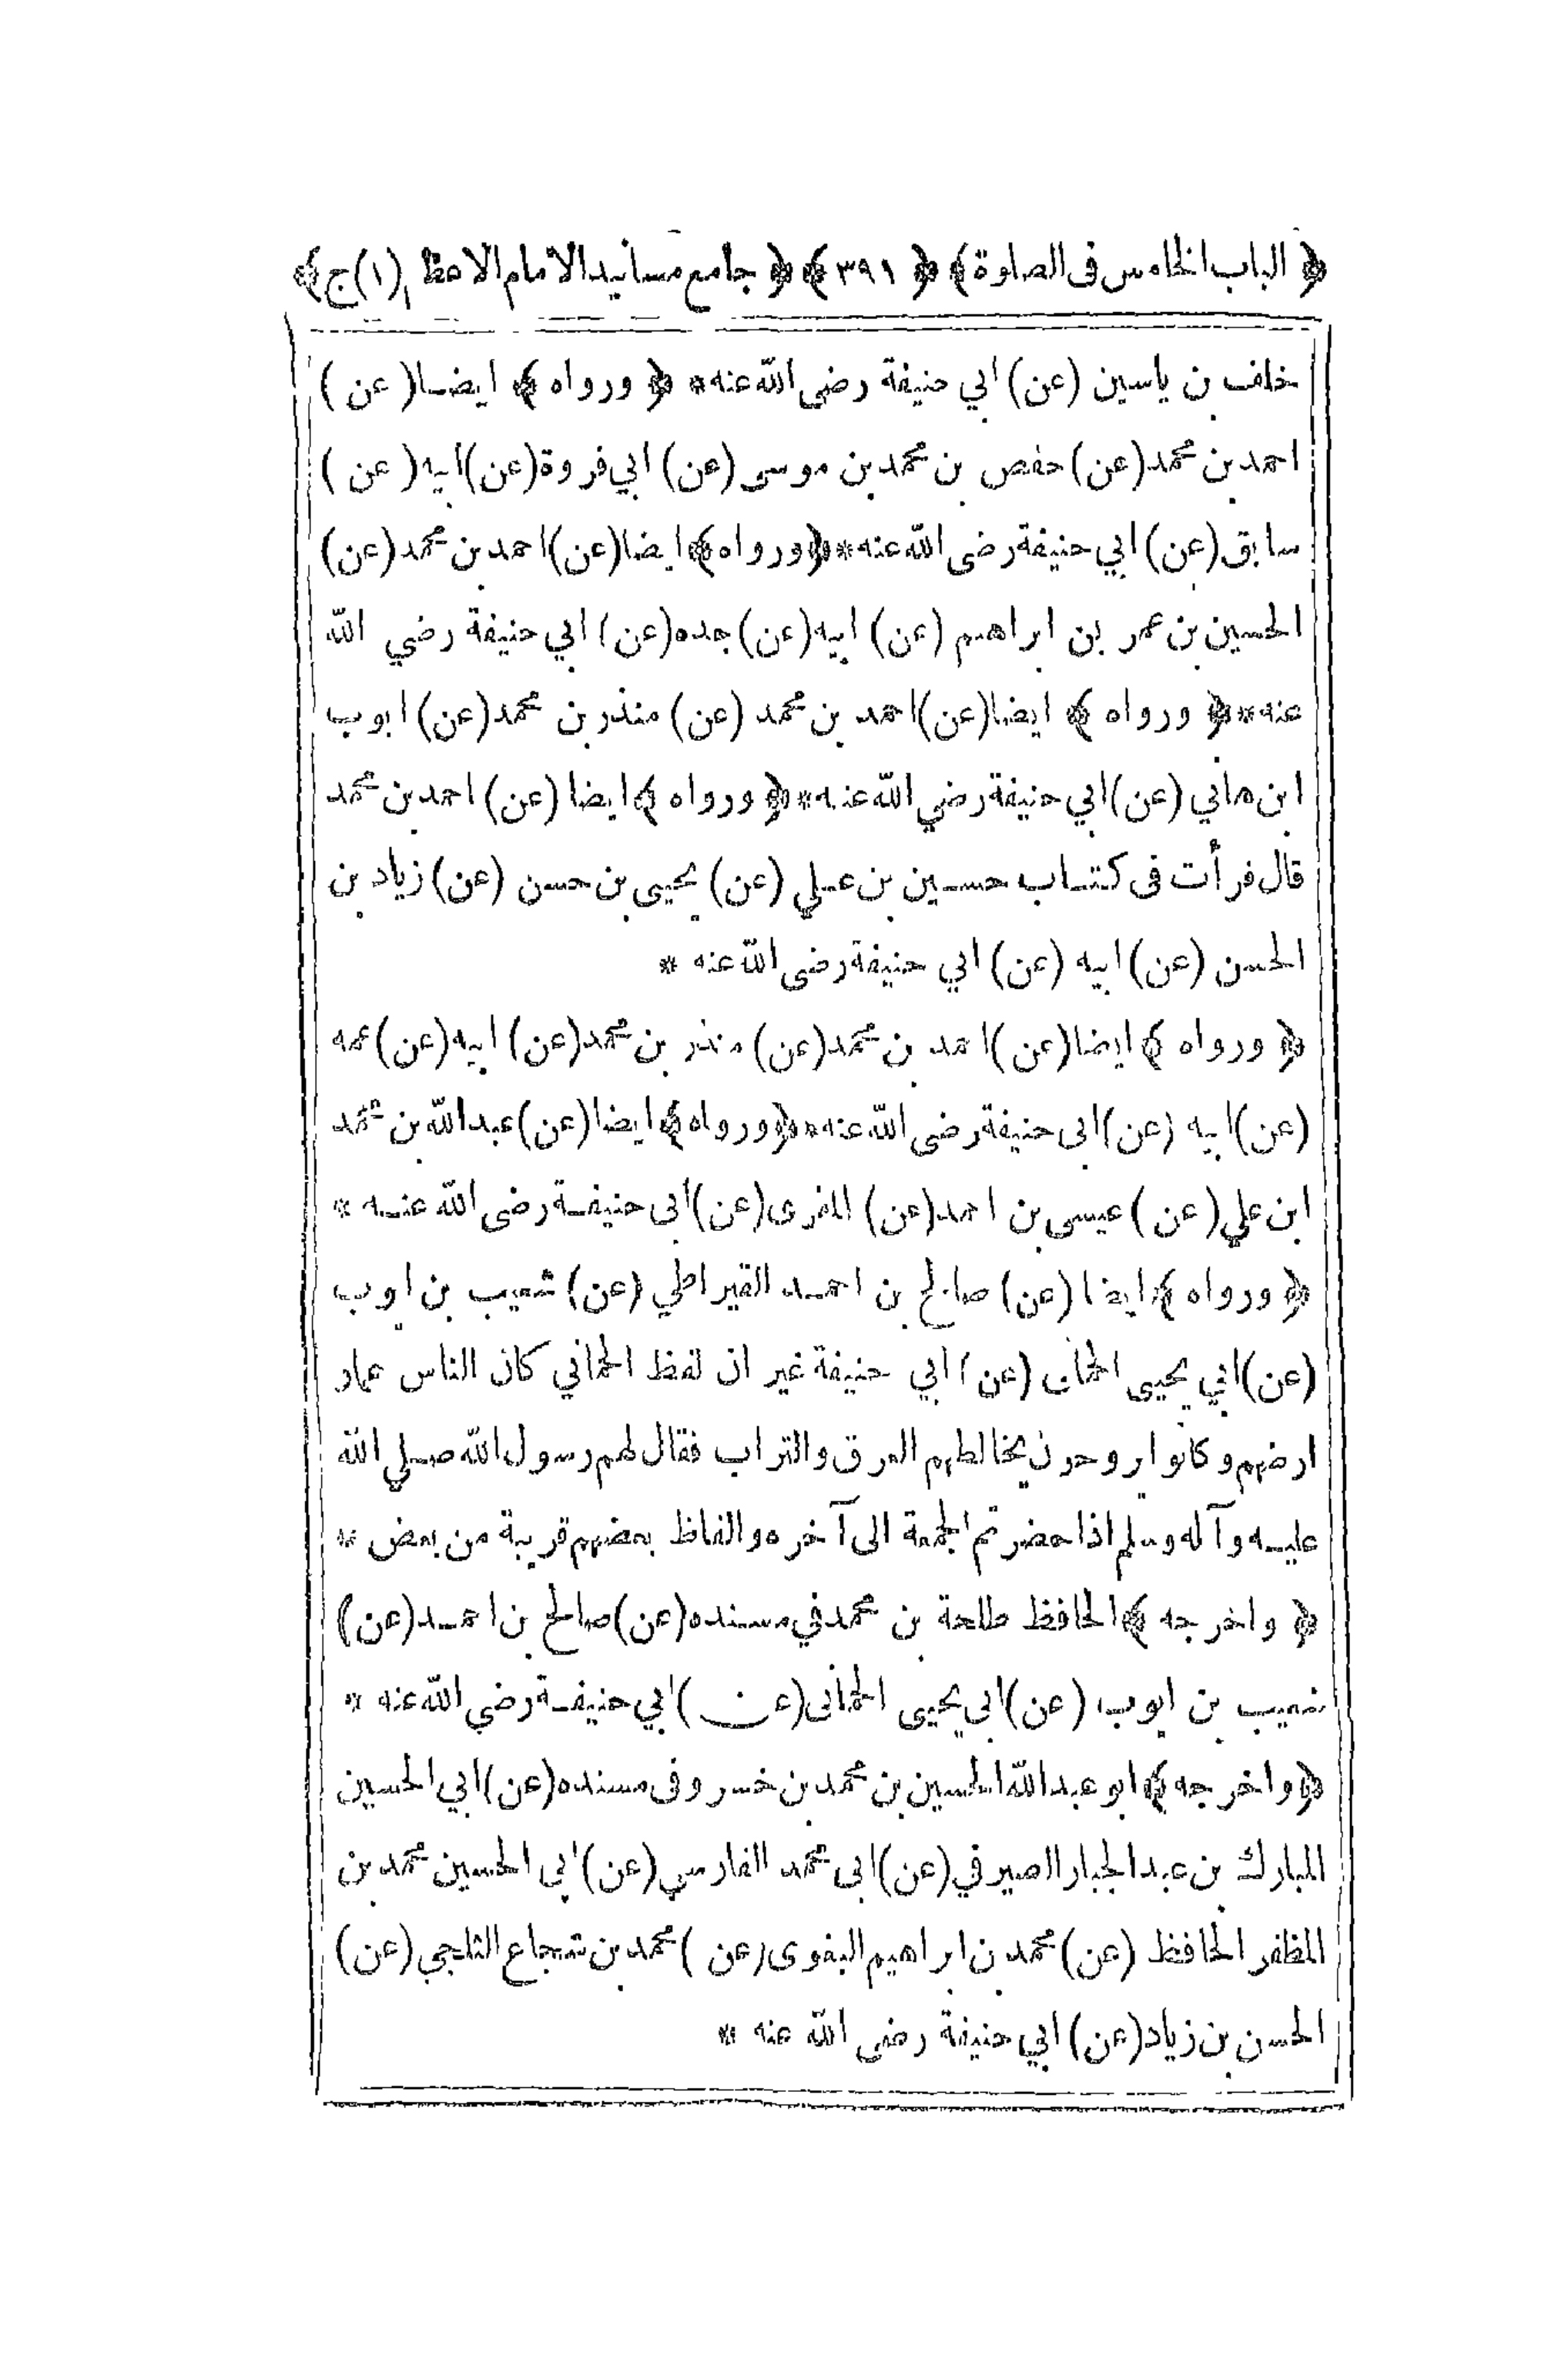 ﴿ الباب الخامس فى الصلوة ﴾ ﴿ ٣٩١ ﴾ ﴿ جامع مسانيد الامام الاعظم (١) ج ﴾
خلف بن ياسين (عن) ابي حنيفة رضى الله عنه * ﴿ ورواه ﴾ ايضا (عن)
احمد بن محمد (عن) حفص بن محمد بن موسى (عن) ابي فروة (عن) ابيه (عن)
سابق (عن) ابي حنيفة رضى الله عنه * ﴿ ورواه ﴾ ايضا (عن) احمد بن محمد (عن)
الحسين بن عمر بن ابراهيم (عن) ابيه (عن) جده (عن) ابي حنيفة رضي الله
عنه * ﴿ ورواه ﴾ ايضا (عن) احمد بن محمد (عن) منذر بن محمد (عن) ايوب
ابن هاني (عن) ابي حنيفة رضي الله عنه * ﴿ ورواه ﴾ ايضا (عن) احمد بن محمد
قال قرأت فى كتاب حسين بن علي (عن) يحيى بن حسن (عن) زياد بن
الحسن (عن) ابيه (عن) ابي حنيفة رضى الله عنه *
﴿ ورواه ﴾ ايضا (عن) احمد بن محمد (عن) منذر بن محمد (عن) ابيه (عن) عمه
(عن) ابيه (عن) ابى حنيفة رضى الله عنه * ﴿ ورواه ﴾ ايضا (عن) عبد الله بن محمد
ابن علي (عن) عيسى بن احمد (عن) المقرى (عن) ابى حنيفة رضى الله عنه *
﴿ ورواه ﴾ ايضا (عن) صالح بن احمد القيراطي (عن) شعيب بن ايوب
(عن) ابي يحيى الحمانى (عن) ابي حنيفة غير ان لفظ الحماني كان الناس عمار
ارضهم وكانوا يروحون يخالطهم العرق والتراب فقال لهم رسول الله صلي الله
عليه وآله وسلم اذا حضرتم الجمعة الى آخره والفاظ بعضهم قريبة من بعض *
﴿ واخرجه ﴾ الحافظ طلحة بن محمد في مسنده (عن) صالح بن احمد (عن)
شعيب بن ايوب (عن) ابى يحيى الحمانى (عن) ابي حنيفة رضي الله عنه *
﴿ واخرجه ﴾ ابو عبد الله الحسين بن محمد بن خسرو فى مسنده (عن) ابي الحسين
المبارك بن عبد الجبار الصيرفي (عن) ابى محمد الفارسي (عن) ابى الحسين محمد بن
المظفر الحافظ (عن) محمد بن ابراهيم البغوى (عن) محمد بن شجاع الثلجي (عن)
الحسن بن زياد (عن) ابي حنيفة رضى الله عنه *